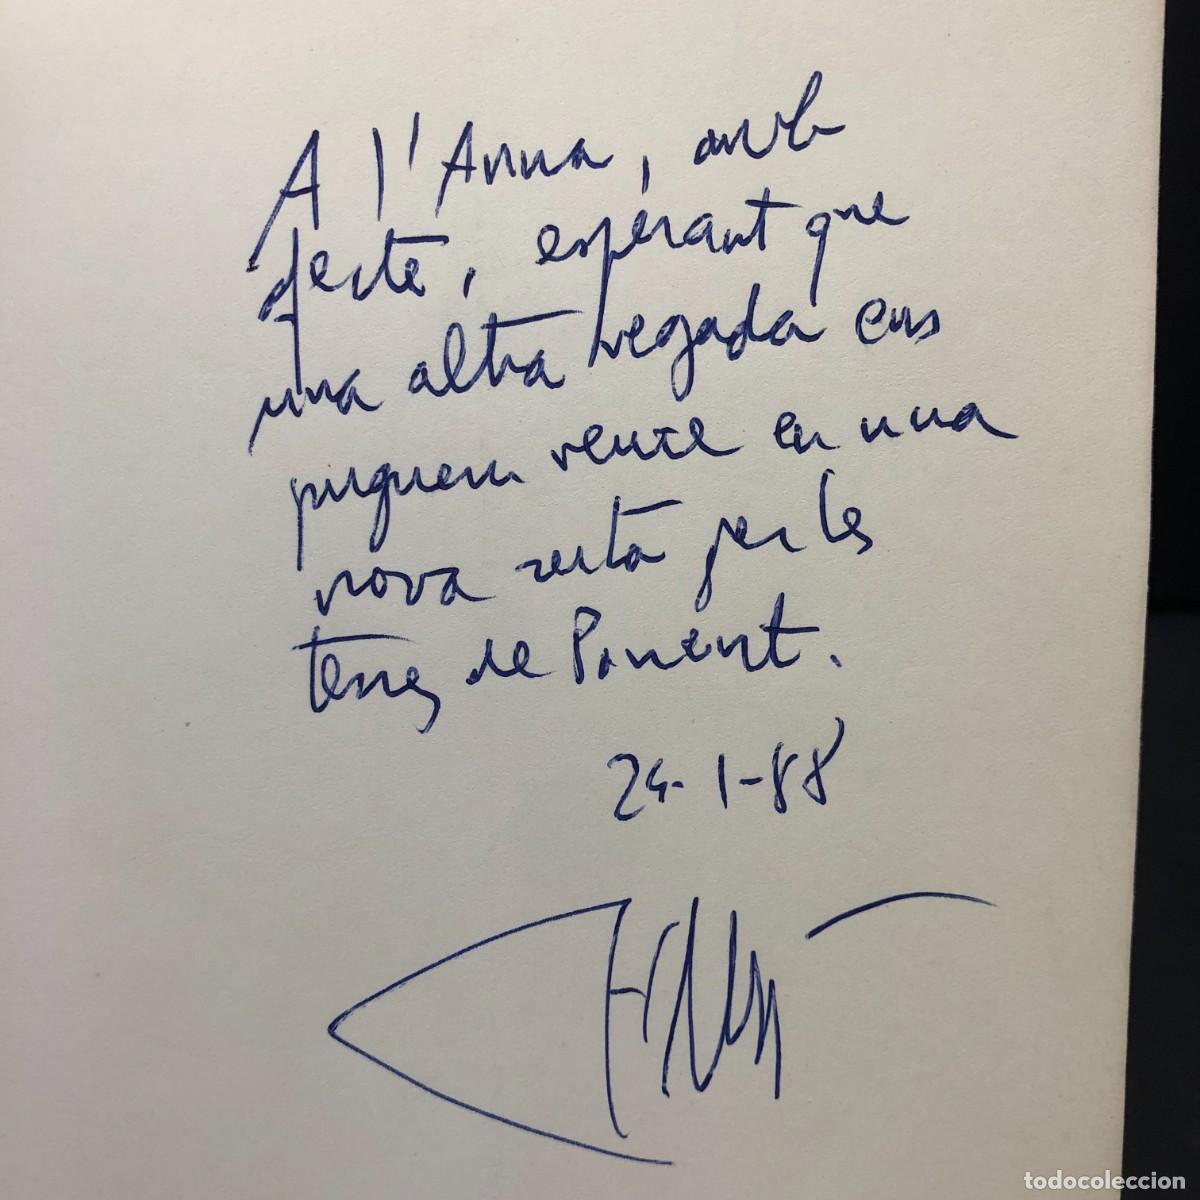 A l'Anna, amb
afecte, esperant que
una altra vegada ens
puguem veure en una
nova festa per les
terres de Ponent.
24-1-88
todocoleccion